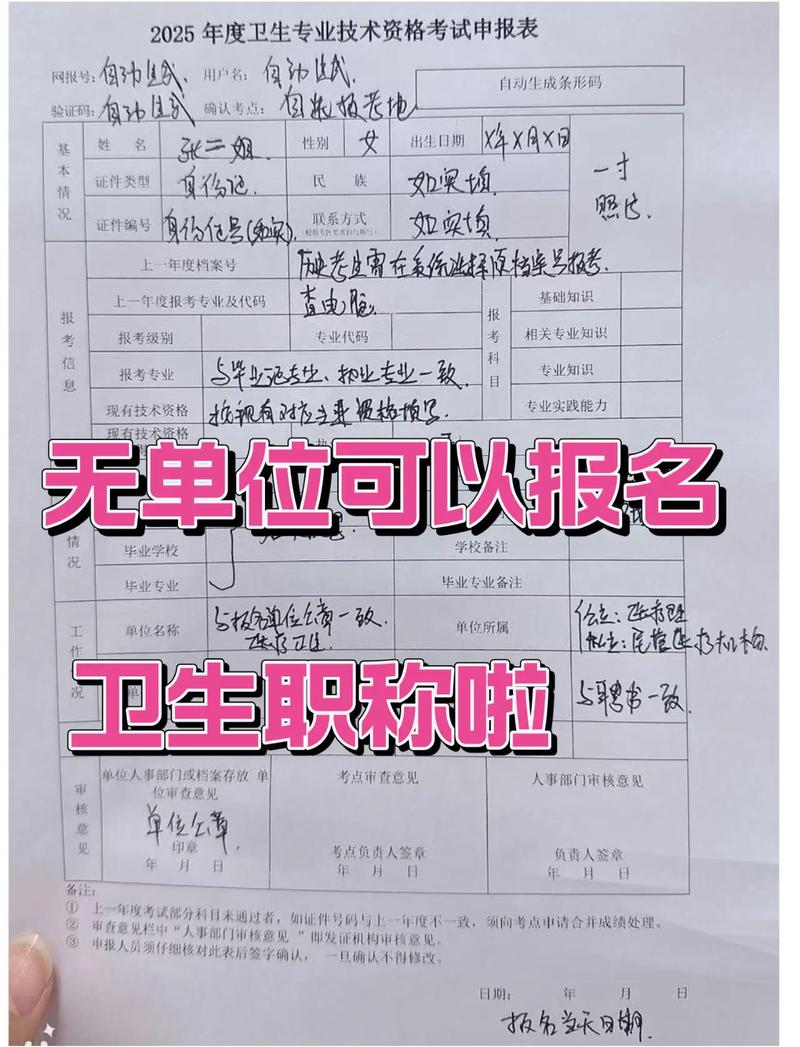 2025 年度卫生专业技术资格考试申报表
网报号:自动生成. 用户名:自动生成.
自动生成条形码
验证码:自动生成 确认考点:自选报考地
基本情况
姓 名 张二姐. 性别 女 出生日期 X年X月X日
一寸照片.
证件类型 身份证. 民 族 如实填.
证件编号 身份证号(如实). 联系方式 如实填.
报考信息
上一年度档案号 历史考生需在系统选择原档案号报考.
上一年度报考专业及代码 查电脑.
报考科目
基础知识
报考级别 专业代码 相关专业知识
报考专业 与毕业证专业、执业专业一致. 专业知识
现有技术资格 按现有对应主要资格填写. 专业实践能力
现有技术资格
无单位可以报名
情况
毕业学校 学校备注
毕业专业 毕业专业备注
工作
单位名称 与报名单位公章一致. 医疗卫生 单位所属 公立:医疗卫生
私立:民营医疗机构
况
与聘书一致.
卫生职称啦
审核意见
单位人事部门或档案存放 单位审查意见 考点审查意见 人事部门审核意见
单位公章.
印章 考点负责人签章 负责人签章
年 月 日 年 月 日 年 月 日
备注:
① 上一年度考试部分科目未通过者,如证件号码与上一年度不一致,须向考点申请合并成绩处理。
② 审查意见栏中“人事部门审核意见 ”即发证机构审核意见。
③ 申报人员须仔细核对此表后签字确认, 一旦确认不得修改。
日期: 年 月 日
报名当天日期.